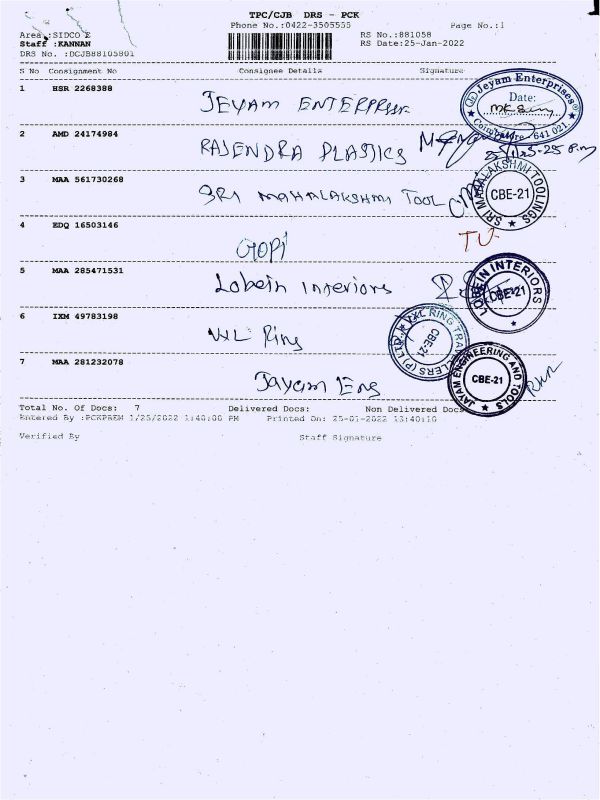 TPC/CJB DRS - PCK
Phone No.:0422-3505555 Page No.:1
Area :SIDCO E RS No.:881058
Staff :KANNAN RS Date:25-Jan-2022
DRS No. :DCJB88105801
S No Consignment No Consignee Details Signature
1 HSR 2268388 JEYAM ENTERPRISE
Jeyam Enterprises
Date:
Coimbatore 641 021.
2 AMD 24174984 RAJENDRA PLASTICS
3 MAA 561730268 SRI MAHALAKSHMI TOOL
SRI MAHALAKSHMI TOOLINGS
CBE-21
4 EDQ 16503146 GOPI TU
5 MAA 285471531 Lobein Interiors
LOBEIN INTERIORS
CBE-21
6 IXM 49783198 VXL Ring
VXL RING TRAVELLERS (P) LTD.
CBE-21
7 MAA 281232078 Jayam Eng
JAYAM ENGINEERING AND TOOLS
CBE-21
Total No. Of Docs: 7 Delivered Docs: Non Delivered Docs
Entered By :PCKPREM 1/25/2022 1:40:00 PM Printed On: 25-01-2022 13:40:10
Verified By Staff Signature